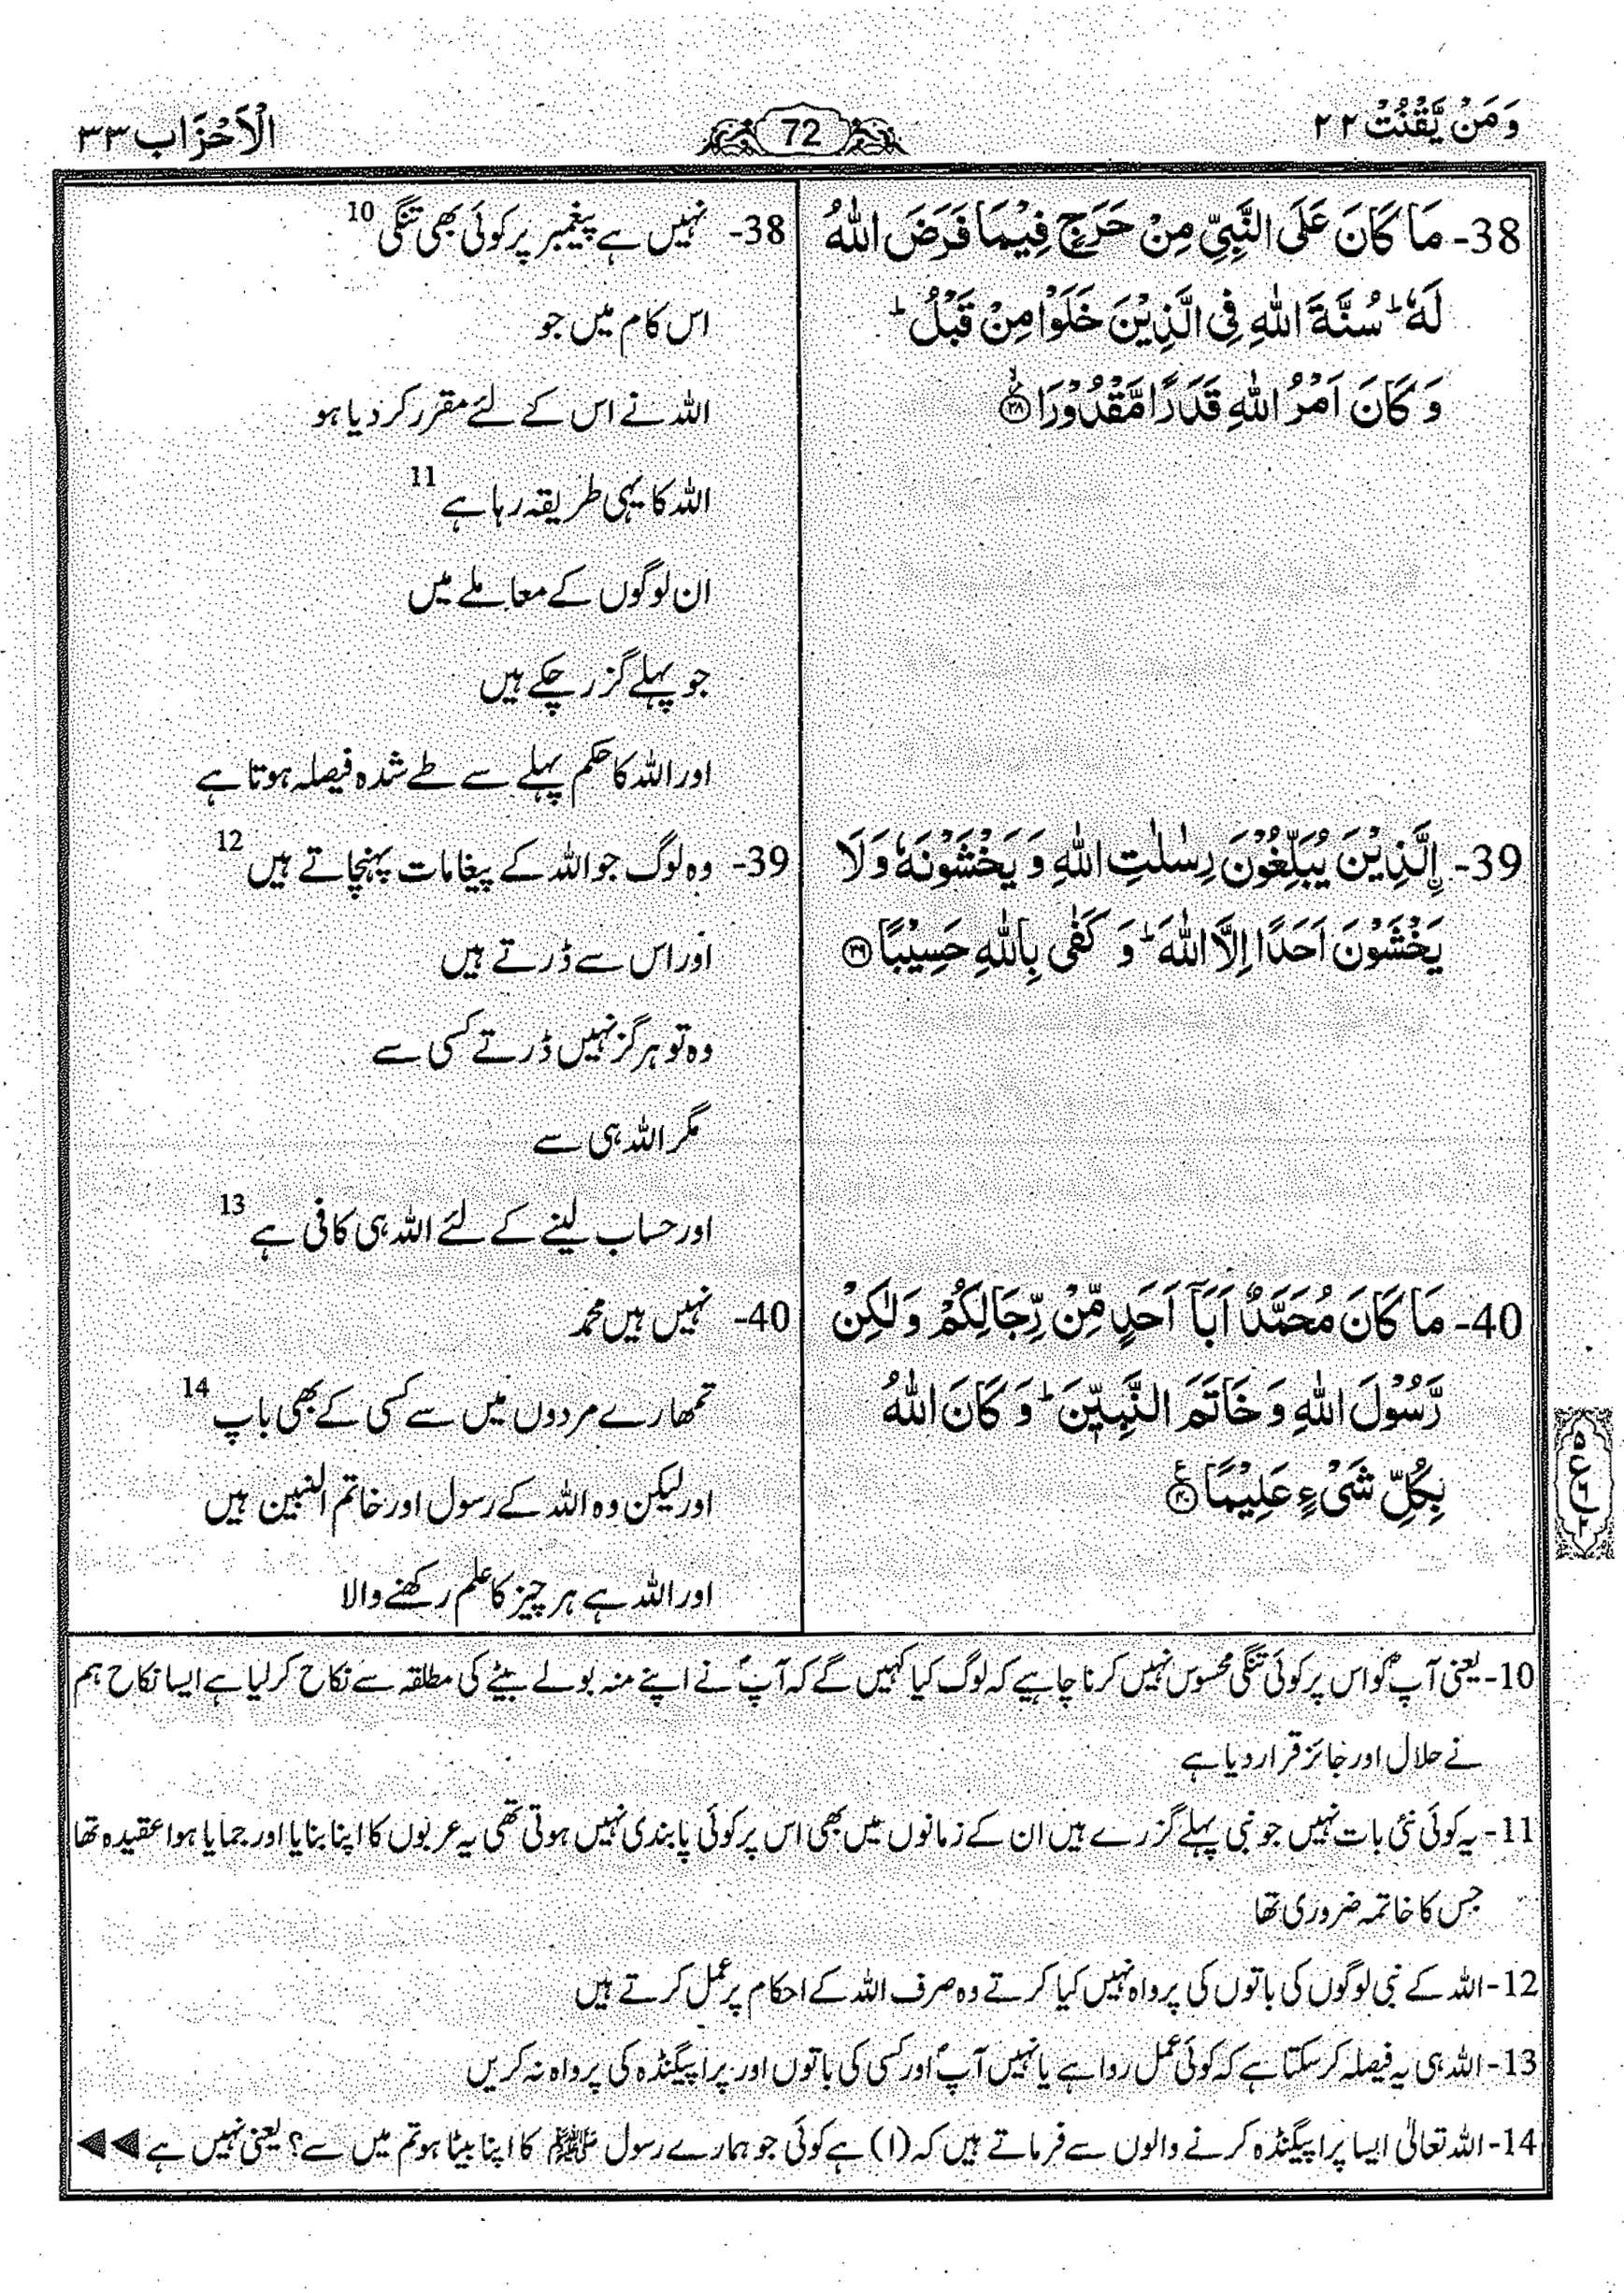 وَ مَنْ یَّقْنُتْ ۲۲
72
اَلْاَحْزَاب ۳۳
38- مَا كَانَ عَلَى النَّبِیِّ مِنْ حَرَجٍ فِیْمَا فَرَضَ اللّٰهُ
لَهٗ ؕ سُنَّةَ اللّٰهِ فِی الَّذِیْنَ خَلَوْا مِنْ قَبْلُ ؕ
وَ كَانَ اَمْرُ اللّٰهِ قَدَرًا مَّقْدُوْرَا ۙ﴿۳۸﴾
39- اِ۟لَّذِیْنَ یُبَلِّغُوْنَ رِسٰلٰتِ اللّٰهِ وَ یَخْشَوْنَهٗ وَ لَا
یَخْشَوْنَ اَحَدًا اِلَّا اللّٰهَ ؕ وَ كَفٰی بِاللّٰهِ حَسِیْبًا ﴿۳۹﴾
40- مَا كَانَ مُحَمَّدٌ اَبَاۤ اَحَدٍ مِّنْ رِّجَالِكُمْ وَ لٰكِنْ
رَّسُوْلَ اللّٰهِ وَ خَاتَمَ النَّبِیّٖنَ ؕ وَ كَانَ اللّٰهُ
بِكُلِّ شَیْءٍ عَلِیْمًا ﴿۴۰﴾
38- نہیں ہے پیغمبر پر کوئی بھی تنگی 10
اس کام میں جو
اللہ نے اس کے لئے مقرر کر دیا ہو
اللہ کا یہی طریقہ رہا ہے 11
ان لوگوں کے معاملے میں
جو پہلے گزر چکے ہیں
اور اللہ کا حکم پہلے سے طے شدہ فیصلہ ہوتا ہے
39- وہ لوگ جو اللہ کے پیغامات پہنچاتے ہیں 12
اور اس سے ڈرتے ہیں
وہ تو ہرگز نہیں ڈرتے کسی سے
مگر اللہ ہی سے
اور حساب لینے کے لئے اللہ ہی کافی ہے 13
40- نہیں ہیں محمد
تمھارے مردوں میں سے کسی کے بھی باپ 14
اور لیکن وہ اللہ کے رسول اور خاتم النبین ہیں
اور اللہ ہے ہر چیز کا علم رکھنے والا
10- یعنی آپؐ کو اس پر کوئی تنگی محسوس نہیں کرنا چاہیے کہ لوگ کیا کہیں گے کہ آپؐ نے اپنے منہ بولے بیٹے کی مطلقہ سے نکاح کر لیا ہے ایسا نکاح ہم
نے حلال اور جائز قرار دیا ہے
11- یہ کوئی نئی بات نہیں جو نبی پہلے گزرے ہیں ان کے زمانوں میں بھی اس پر کوئی پابندی نہیں ہوتی تھی یہ عربوں کا اپنا بنایا اور جمایا ہوا عقیدہ تھا
جس کا خاتمہ ضروری تھا
12- اللہ کے نبی لوگوں کی باتوں کی پرواہ نہیں کیا کرتے وہ صرف اللہ کے احکام پر عمل کرتے ہیں
13- اللہ ہی یہ فیصلہ کر سکتا ہے کہ کوئی عمل روا ہے یا نہیں آپؐ اور کسی کی باتوں اور پراپیگنڈہ کی پرواہ نہ کریں
14- اللہ تعالیٰ ایسا پراپیگنڈہ کرنے والوں سے فرماتے ہیں کہ (۱) ہے کوئی جو ہمارے رسول ﷺ کا اپنا بیٹا ہو تم میں سے؟ یعنی نہیں ہے ◄◄